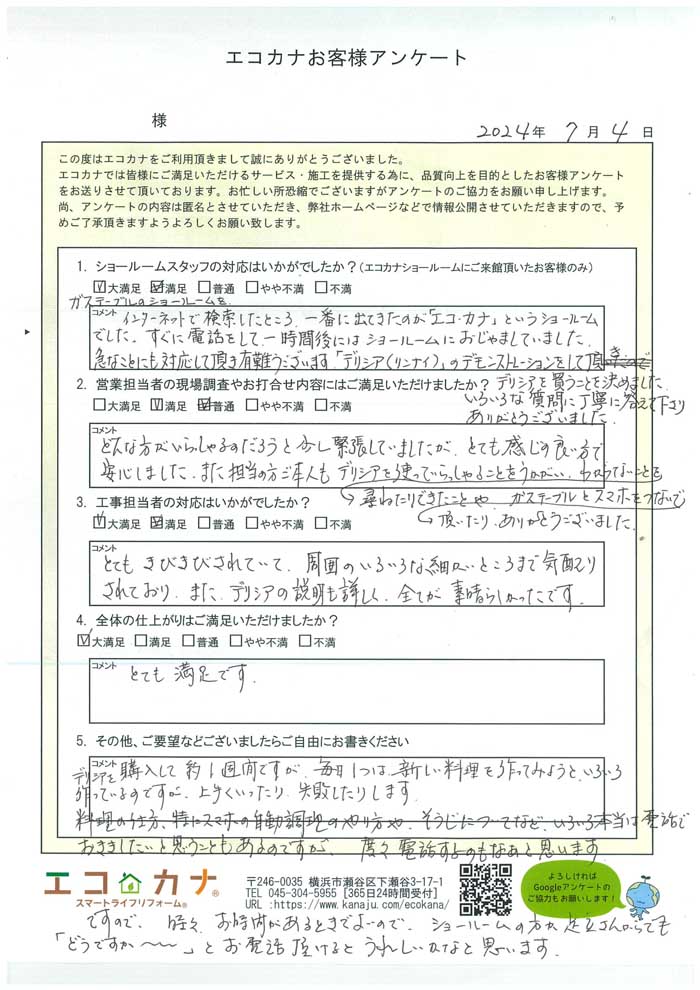 エコカナお客様アンケート
様
2024年 7月 4日
この度はエコカナをご利用頂きまして誠にありがとうございました。
エコカナでは皆様にご満足いただけるサービス・施工を提供する為に、品質向上を目的としたお客様アンケート
をお送りさせて頂いております。お忙しい所恐縮でございますがアンケートのご協力をお願い申し上げます。
尚、アンケートの内容は匿名とさせていただき、弊社ホームページなどで情報公開させていただきますので、予
めご了承頂きますようよろしくお願い致します。
1. ショールームスタッフの対応はいかがでしたか？(エコカナショールームにご来館頂いたお客様のみ)
☑大満足 ☑満足 □普通 □やや不満 □不満
ガステーブルのショールームを、
コメント インターネットで検索したところ、一番に出てきたのが「エコ・カナ」というショールーム
でした。すぐに電話をして、一時間後にはショールームにおじゃましていました。
急なことにも対応して頂き有難うございます。「デリシア(リンナイ)」のデモンストレーションをして頂き
デリシアを買うことを決めました。
いろいろな質問に丁寧に答えて下さり
ありがとうございました。
2. 営業担当者の現場調査やお打合せ内容にはご満足いただけましたか？
□大満足 ☑満足 ☑普通 □やや不満 □不満
コメント どんな方がいらっしゃるのだろうと少し緊張していましたが、とても感じの良い方で
安心しました。また担当の方ご本人もデリシアを使っていらっしゃることをうかがい、わからないことを
尋ねたりできたことや、ガステーブルとスマホをつないで
頂いたり、ありがとうございました。
3. 工事担当者の対応はいかがでしたか？
☑大満足 ☑満足 □普通 □やや不満 □不満
コメント とてもきびきびされていて、周囲のいろいろな細かいところまで気配り
されており、また、デリシアの説明も詳しく、全てが素晴らしかったです。
4. 全体の仕上がりはご満足いただけましたか？
☑大満足 □満足 □普通 □やや不満 □不満
コメント とても満足です。
5. その他、ご要望などございましたらご自由にお書きください
コメント デリシアを購入して約1週間ですが、毎日1つは新しい料理を作ってみようと、いろいろ
作っているのですが、上手くいったり、失敗したりします。
料理の仕方、特にスマホの自動調理のやり方や、そうじについてなど、いろいろ本当は電話で
おききしたいと思うこともあるのですが、度々電話するのもなあと思います。
エコカナ®
スマートライフリフォーム®
〒246-0035 横浜市瀬谷区下瀬谷3-17-1
TEL 045-304-5955 [365日24時間受付]
URL :https://www.kanaju.com/ecokana/
よろしければ
Googleアンケートの
ご協力もお願いします！
ですので、時々、お時間があるときでよいので、ショールームの方か
「どうですか〜〜」とお電話頂けるとうれしいかなと思います。